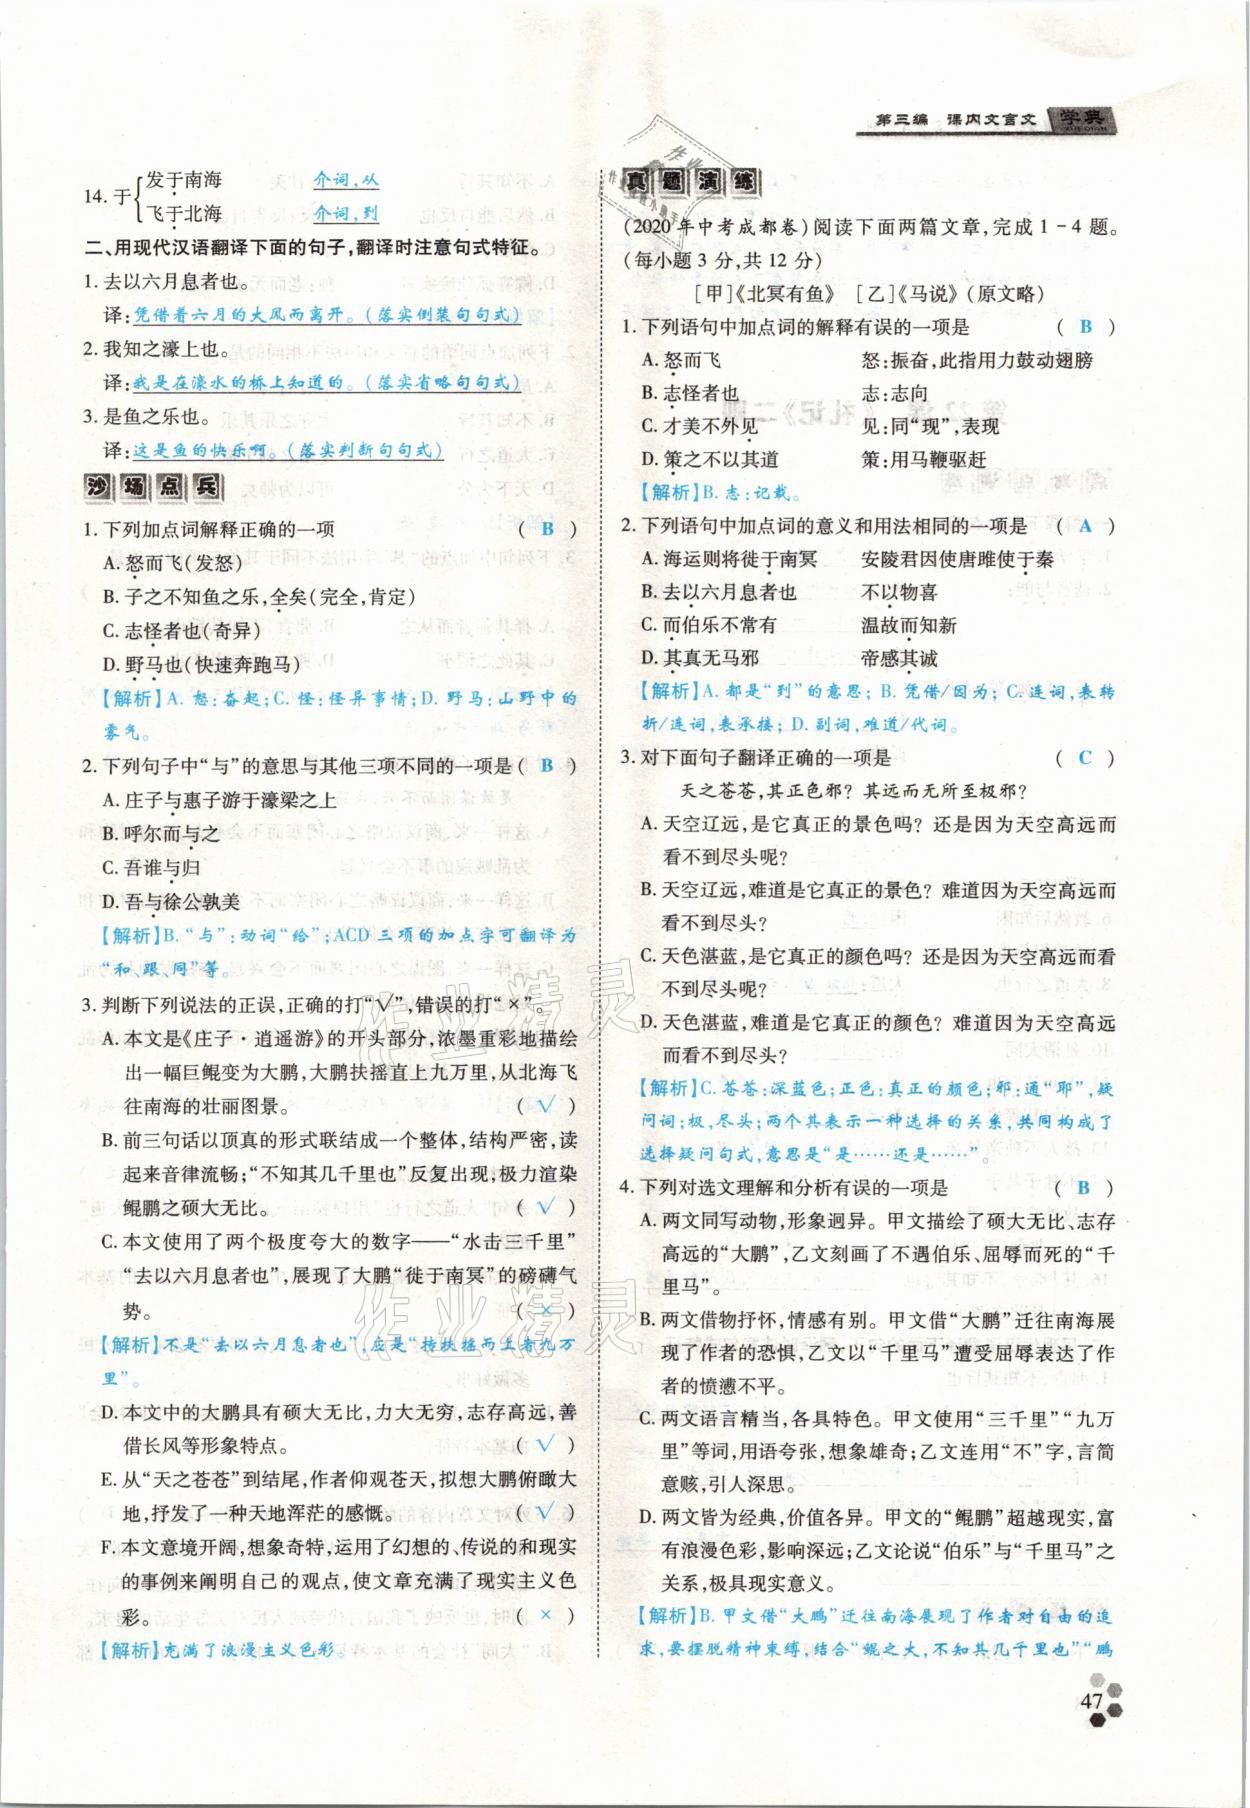 第三编 课内文言文 学典
14. 于
发于南海 介词,从
飞于北海 介词,到
二、用现代汉语翻译下面的句子,翻译时注意句式特征。
1. 去以六月息者也。
译:凭借着六月的大风而离开。(落实倒装句句式)
2. 我知之濠上也。
译:我是在濠水的桥上知道的。(落实省略句句式)
3. 是鱼之乐也。
译:这是鱼的快乐啊。(落实判断句句式)
沙场点兵
1. 下列加点词解释正确的一项 ( B )
A. 怒而飞(发怒)
B. 子之不知鱼之乐,全矣(完全,肯定)
C. 志怪者也(奇异)
D. 野马也(快速奔跑马)
【解析】A. 怒:奋起;C. 怪:怪异事情;D. 野马:山野中的
雾气。
2. 下列句子中“与”的意思与其他三项不同的一项是( B )
A. 庄子与惠子游于濠梁之上
B. 呼尔而与之
C. 吾谁与归
D. 吾与徐公孰美
【解析】B. “与”:动词“给”;ACD 三项的加点字可翻译为
“和、跟、同”等。
3. 判断下列说法的正误,正确的打“√”,错误的打“×”。
A. 本文是《庄子·逍遥游》的开头部分,浓墨重彩地描绘
出一幅巨鲲变为大鹏,大鹏扶摇直上九万里,从北海飞
往南海的壮丽图景。 ( √ )
B. 前三句话以顶真的形式联结成一个整体,结构严密,读
起来音律流畅;“不知其几千里也”反复出现;极力渲染
鲲鹏之硕大无比。 ( √ )
C. 本文使用了两个极度夸大的数字——“水击三千里”
“去以六月息者也”,展现了大鹏“徙于南冥”的磅礴气
势。 ( × )
【解析】不是“去以六月息者也”,应是“抟扶摇而上者九万
里”。
D. 本文中的大鹏具有硕大无比,力大无穷,志存高远,善
借长风等形象特点。 ( √ )
E. 从“天之苍苍”到结尾,作者仰观苍天,拟想大鹏俯瞰大
地,抒发了一种天地浑茫的感慨。 ( √ )
F. 本文意境开阔,想象奇特,运用了幻想的、传说的和现实
的事例来阐明自己的观点,使文章充满了现实主义色
彩。 ( × )
【解析】充满了浪漫主义色彩。
真题演练
(2020 年中考成都卷)阅读下面两篇文章,完成 1-4 题。
(每小题 3 分,共 12 分)
[甲]《北冥有鱼》 [乙]《马说》(原文略)
1. 下列语句中加点词的解释有误的一项是 ( B )
A. 怒而飞 怒:振奋,此指用力鼓动翅膀
B. 志怪者也 志:志向
C. 才美不外见 见:同“现”,表现
D. 策之不以其道 策:用马鞭驱赶
【解析】B. 志:记载。
2. 下列语句中加点词的意义和用法相同的一项是 ( A )
A. 海运则将徙于南冥 安陵君因使唐雎使于秦
B. 去以六月息者也 不以物喜
C. 而伯乐不常有 温故而知新
D. 其真无马邪 帝感其诚
【解析】A. 都是“到”的意思; B. 凭借/因为; C. 连词,表转
折/连词,表承接; D. 副词,难道/代词。
3. 对下面句子翻译正确的一项是 ( C )
天之苍苍,其正色邪? 其远而无所至极邪?
A. 天空辽远,是它真正的景色吗? 还是因为天空高远而
看不到尽头呢?
B. 天空辽远,难道是它真正的景色? 难道因为天空高远
而看不到尽头?
C. 天色湛蓝,是它真正的颜色吗? 还是因为天空高远而
看不到尽头呢?
D. 天色湛蓝,难道是它真正的颜色? 难道因为天空高远
而看不到尽头?
【解析】C. 苍苍:深蓝色;正色:真正的颜色;邪:通“耶”,疑
问词;极,尽头;两个其表示一种选择的关系,共同构成了
选择疑问句式,意思是“是……还是……”。
4. 下列对选文理解和分析有误的一项是 ( B )
A. 两文同写动物,形象迥异。甲文描绘了硕大无比、志存
高远的“大鹏”,乙文刻画了不遇伯乐、屈辱而死的“千
里马”。
B. 两文借物抒怀,情感有别。甲文借“大鹏”迁往南海展
现了作者的恐惧,乙文以“千里马”遭受屈辱表达了作
者的愤懑不平。
C. 两文语言精当,各具特色。甲文使用“三千里”“九万
里”等词,用语夸张,想象雄奇;乙文连用“不”字,言简
意赅,引人深思。
D. 两文皆为经典,价值各异。甲文的“鲲鹏”超越现实,富
有浪漫色彩,影响深远;乙文论说“伯乐”与“千里马”之
关系,极具现实意义。
【解析】B. 甲文借“大鹏”迁往南海展现了作者对自由的追
求,要摆脱精神束缚,结合“鲲之大,不知其几千里也”“鹏
47
作业精灵
作业精灵